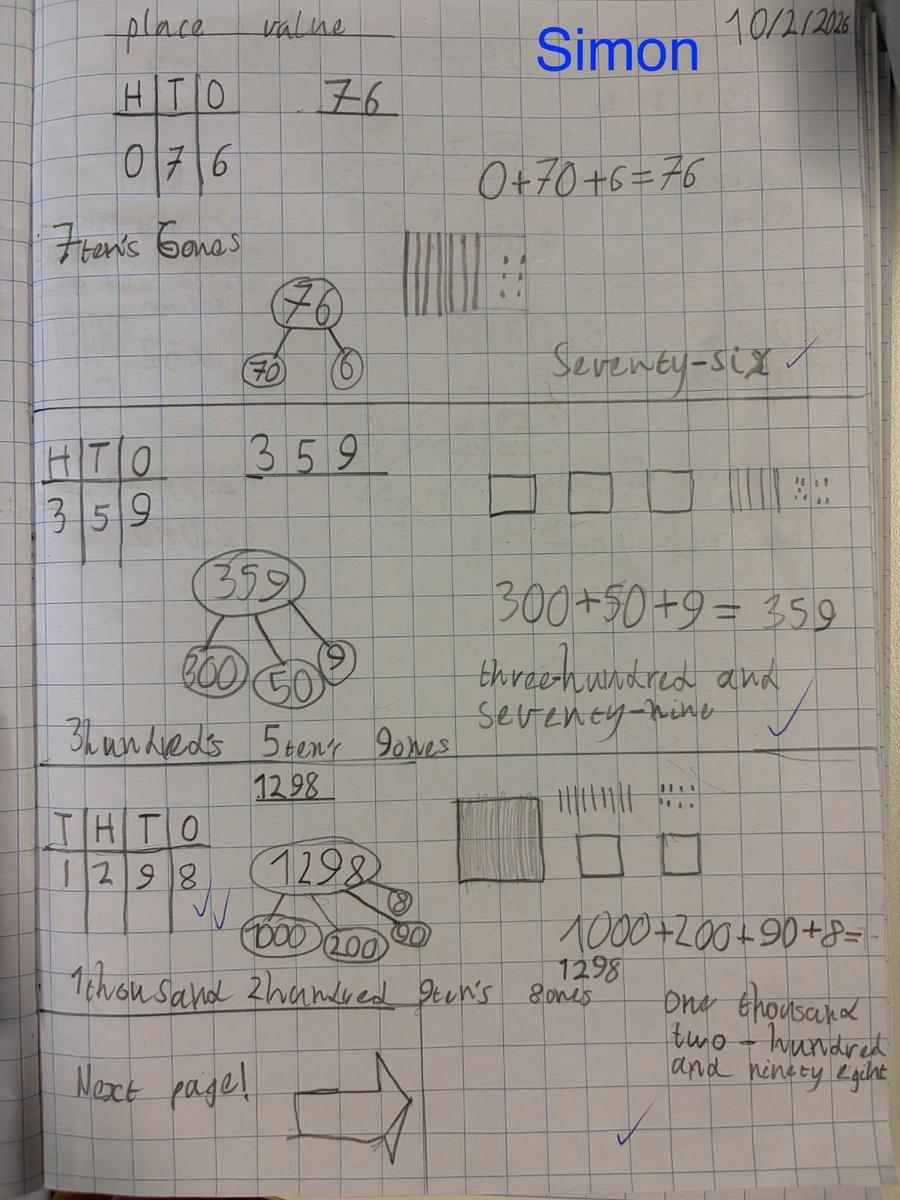 place value
Simon
10/2/2026
H T O
76
0 7 6
0+70+6=76
7ten's 6ones
76
70 6
Seventy-six
H T O
3 5 9
3 5 9
359
300+50+9= 359
300 50 9
three-hundred and
seventy-nine
3hundred's 5ten's 9ones
1298
T H T O
1 2 9 8
1298
8
1000 200 90
1000+200+90+8=
1298
1thousand 2hundred 9ten's 8ones
one thousand
two - hundred
and ninety eghit
Next page!